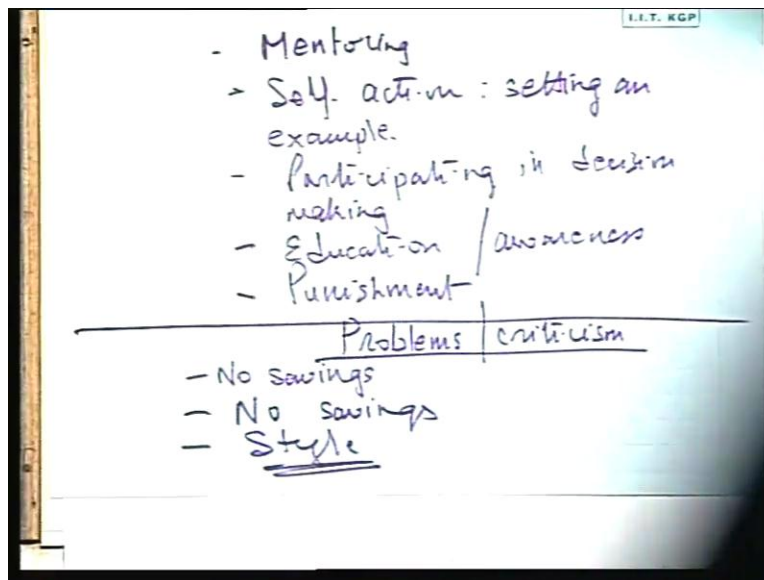 I.I.T. KGP
- Mentoring
- Self action : setting an
example.
- Participating in decision
making
- Education / awareness
- Punishment
Problems / criticism
- No savings
- No savings
- Style